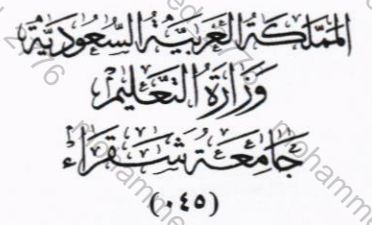 المملكة العربية السعودية
وزارة التعليم
جامعة شقراء
(٠٤٥)
mohamme